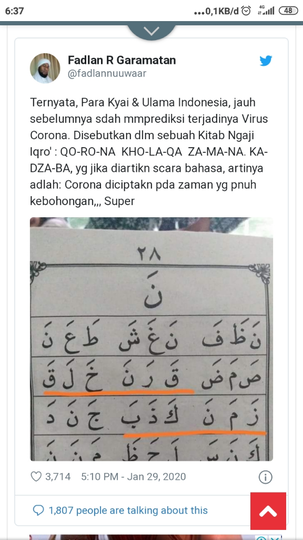 6:37 ...0,1KB/d 4G 48
Fadlan R Garamatan
@fadlannuuwaar
Ternyata, Para Kyai & Ulama Indonesia, jauh
sebelumnya sdah mmprediksi terjadinya Virus
Corona. Disebutkan dlm sebuah Kitab Ngaji
Iqro' : QO-RO-NA KHO-LA-QA ZA-MA-NA. KA-
DZA-BA, yg jika diartikn scara bahasa, artinya
adlah: Corona diciptakn pda zaman yg pnuh
kebohongan,,, Super
٢٨
نَ
نَ ظَ فَ نَ غَ شَ طَ عَ نَ
صَ مَ ضَ قَ رَ نَ خَ لَ قَ
زَ مَ نَ كَ ذَ بَ جَ نَ دَ
3,714 5:10 PM - Jan 29, 2020
1,807 people are talking about this